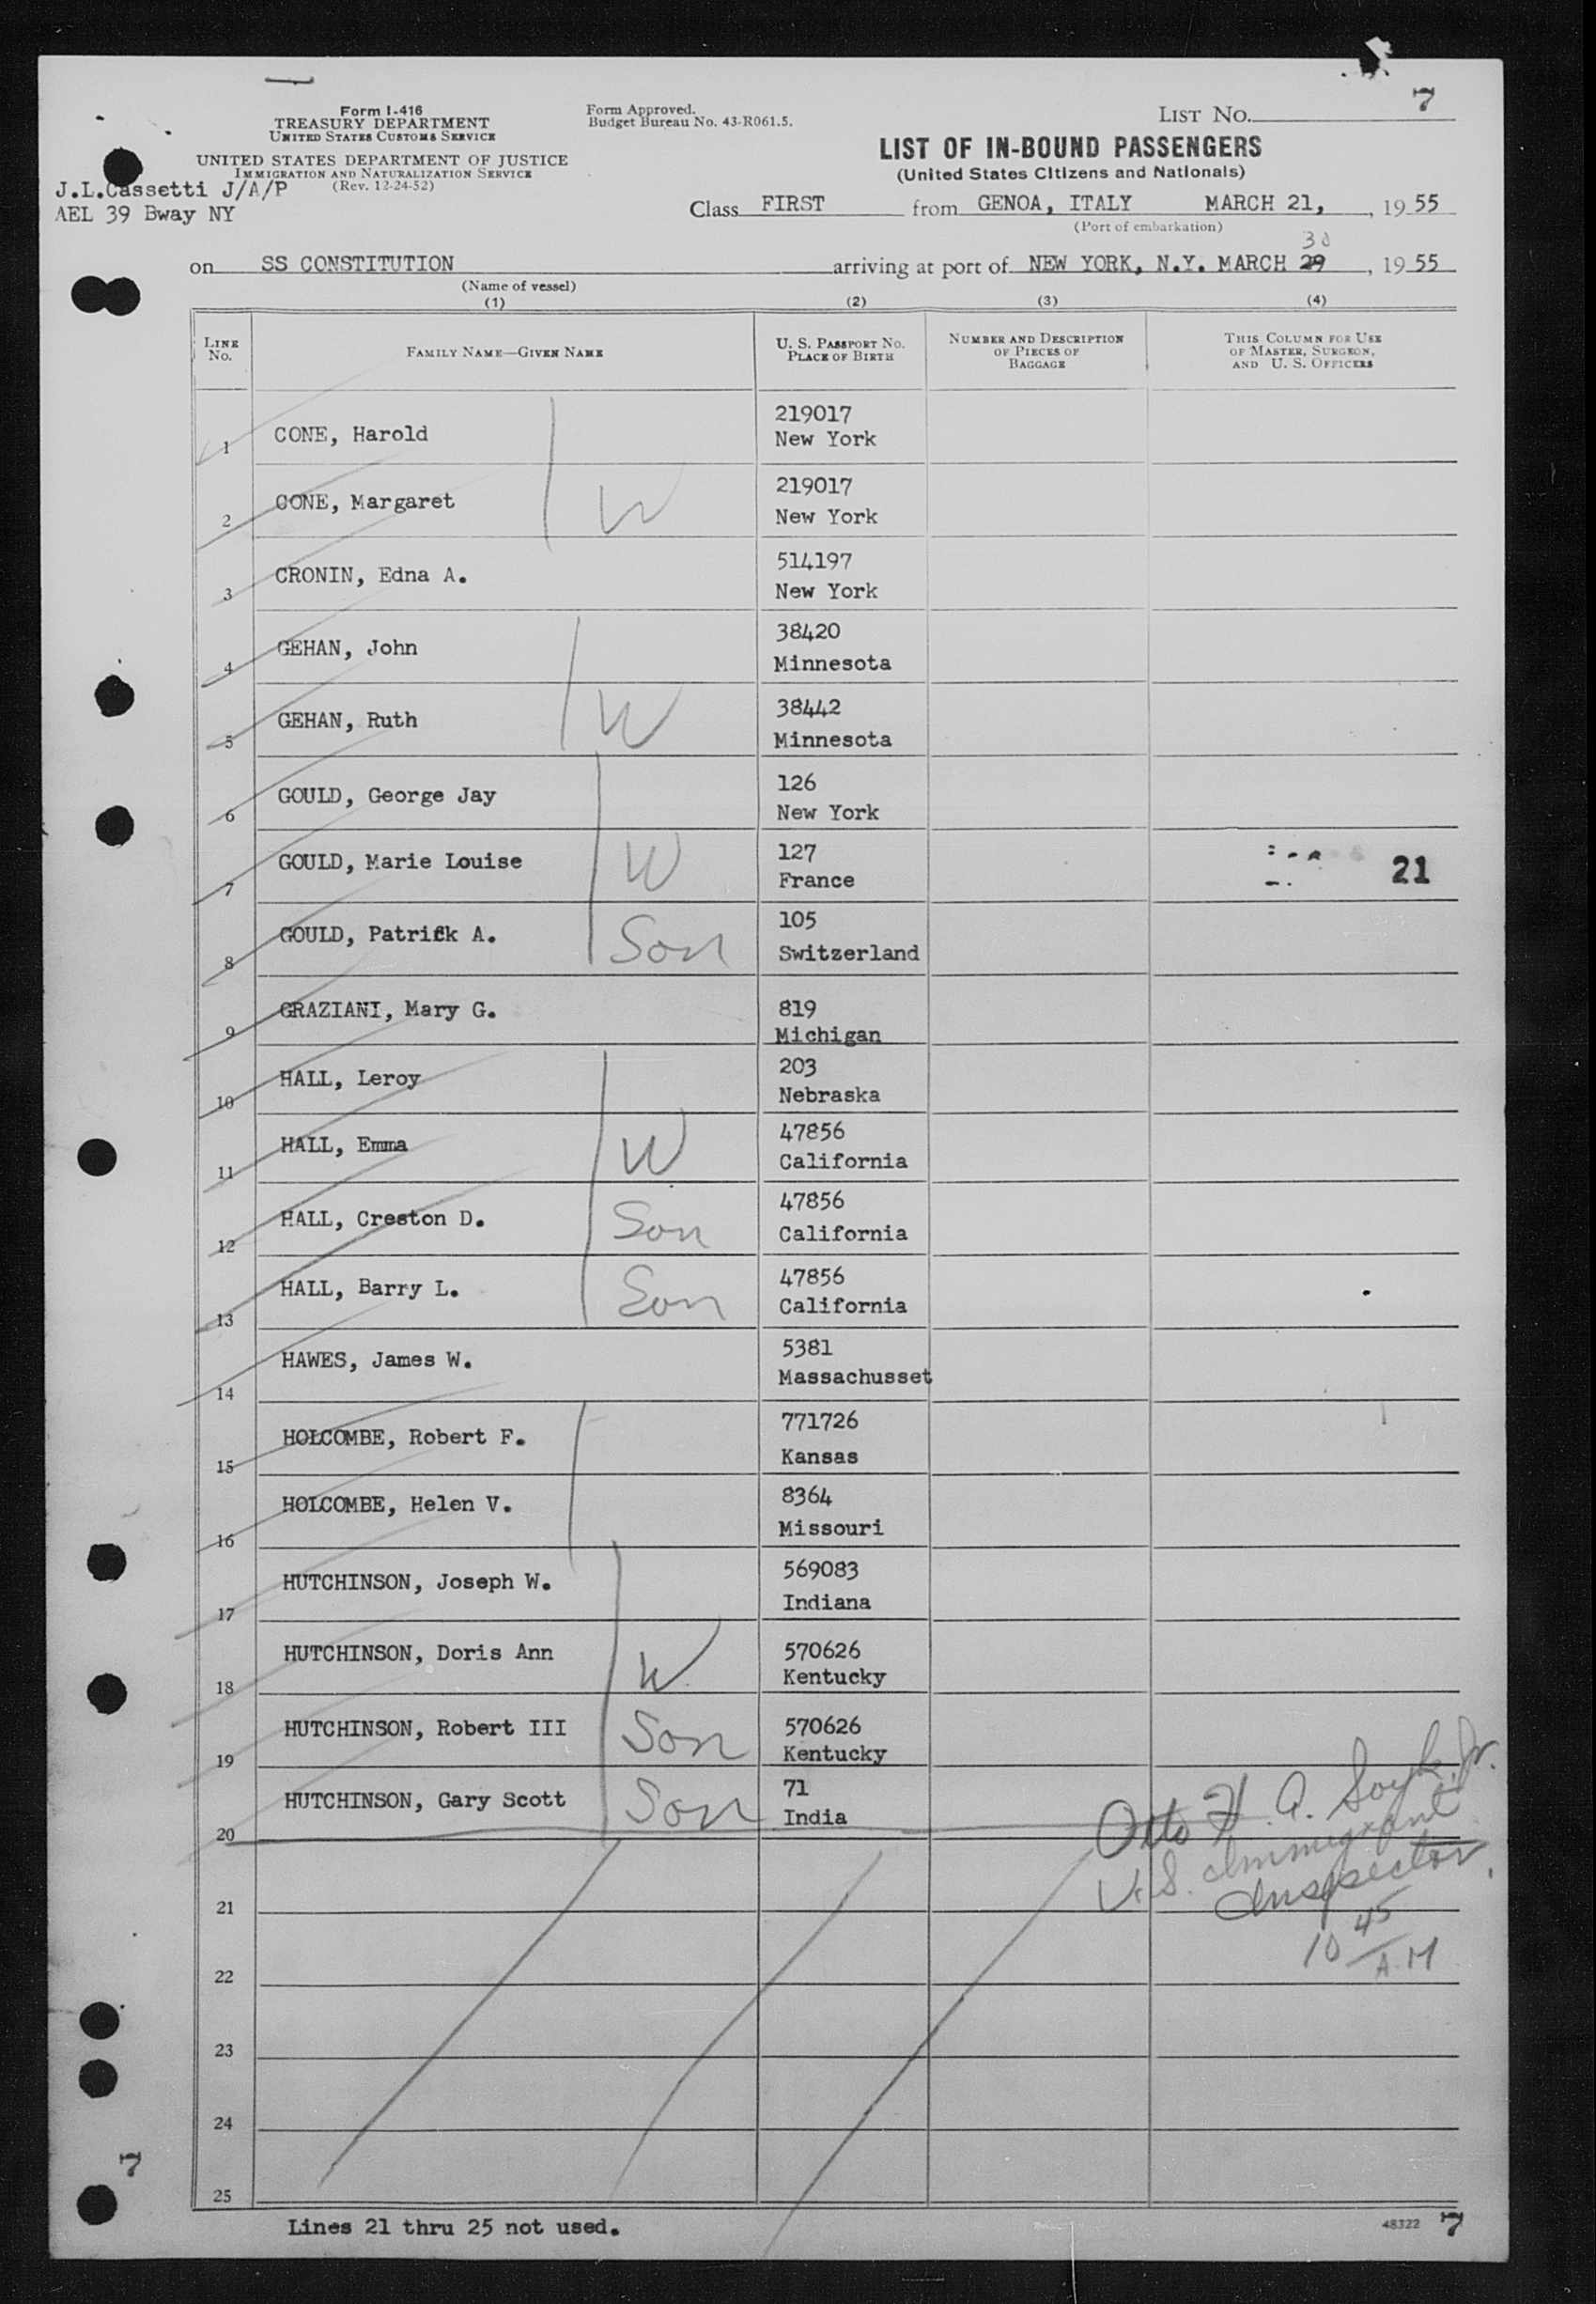 7
Form I-416
TREASURY DEPARTMENT
UNITED STATES CUSTOMS SERVICE
UNITED STATES DEPARTMENT OF JUSTICE
IMMIGRATION AND NATURALIZATION SERVICE
(Rev. 12-24-52)
J.L.Cassetti J/A/P
AEL 39 Bway NY
Form Approved.
Budget Bureau No. 43-R061.5.
LIST NO.
LIST OF IN-BOUND PASSENGERS
(United States Citizens and Nationals)
Class FIRST from GENOA, ITALY MARCH 21, , 19 55
(Port of embarkation)
30
on SS CONSTITUTION arriving at port of NEW YORK, N.Y. MARCH 29 , 19 55
(Name of vessel)
(1) (2) (3) (4)
LINE No. FAMILY NAME—GIVEN NAME U. S. PASSPORT NO. PLACE OF BIRTH NUMBER AND DESCRIPTION OF PIECES OF BAGGAGE THIS COLUMN FOR USE OF MASTER, SURGEON, AND U. S. OFFICERS
1 CONE, Harold 219017 New York
2 CONE, Margaret W 219017 New York
3 CRONIN, Edna A. 514197 New York
4 GEHAN, John 38420 Minnesota
5 GEHAN, Ruth W 38442 Minnesota
6 GOULD, George Jay 126 New York
7 GOULD, Marie Louise W 127 France 21
8 GOULD, Patrick A. Son 105 Switzerland
9 GRAZIANI, Mary G. 819 Michigan
10 HALL, Leroy 203 Nebraska
11 HALL, Emma W 47856 California
12 HALL, Creston D. Son 47856 California
13 HALL, Barry L. Son 47856 California
14 HAWES, James W. 5381 Massachusset
15 HOLCOMBE, Robert F. 771726 Kansas
16 HOLCOMBE, Helen V. 8364 Missouri
17 HUTCHINSON, Joseph W. 569083 Indiana
18 HUTCHINSON, Doris Ann W 570626 Kentucky
19 HUTCHINSON, Robert III Son 570626 Kentucky
20 HUTCHINSON, Gary Scott Son 71 India
Otto H. A. Jr.
U.S. Immigrant
Inspector.
10 45 A.M
21
22
23
24
25
7
Lines 21 thru 25 not used.
48322 7